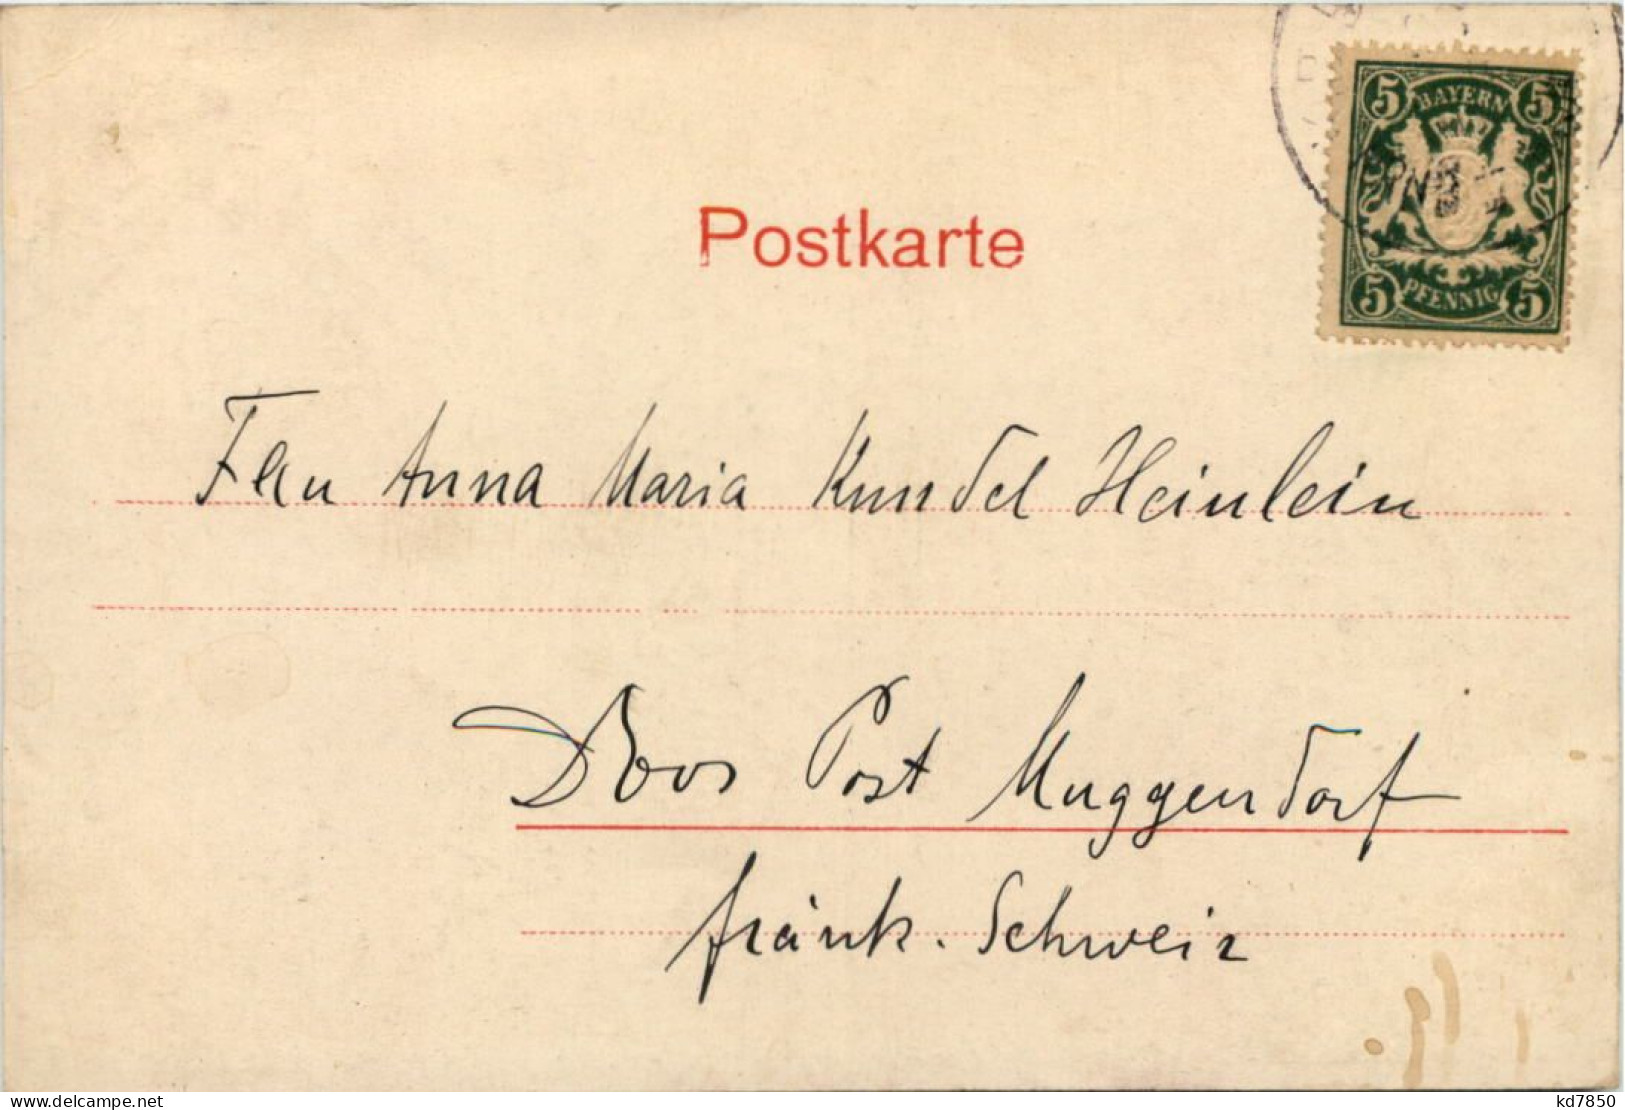 5 BAYERN 5
5 PFENNIG 5
Postkarte
Frau Anna Maria Kundel Heinlein
Doos Post Muggendorf
fränk. Schweiz
www.delcampe.net
kd7850